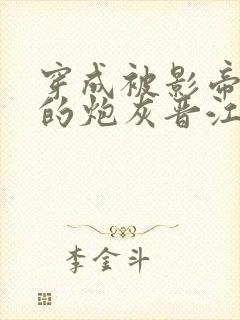 穿成被影帝
的炮灰晋江
李金斗